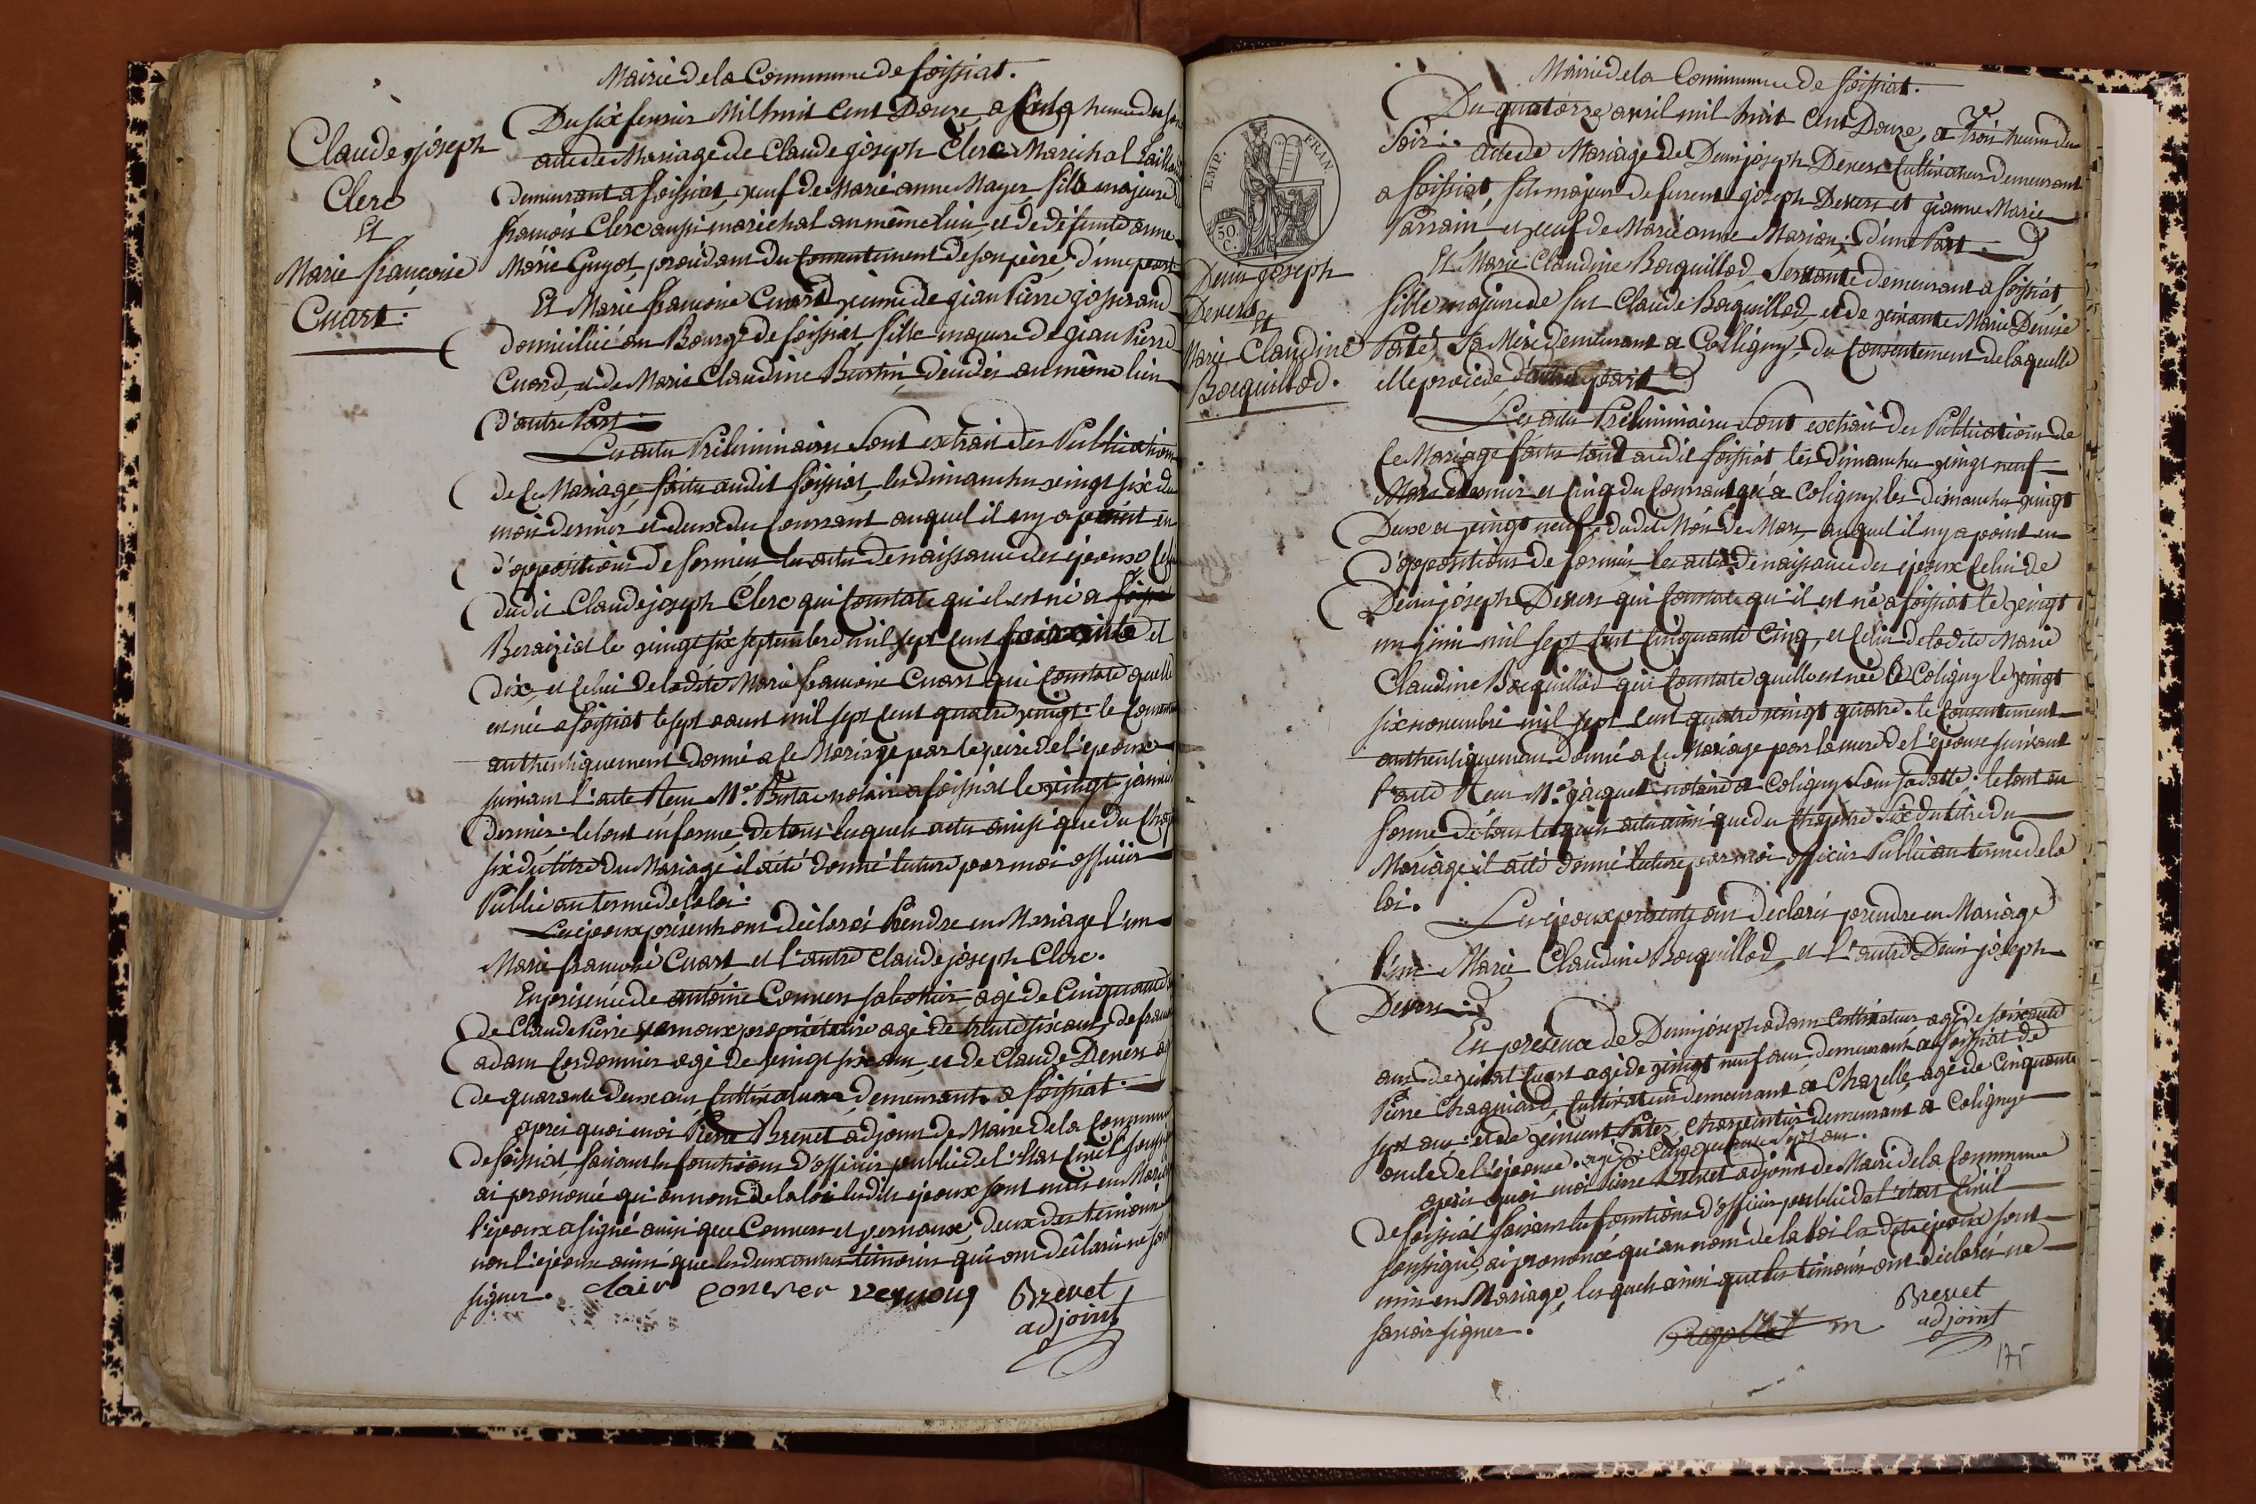 Mairie de la Commune de foissiat.
Claude joseph
Clerc
Et
Marie françoise
Cuart.
Du six fevrier Mil huit Cent Douze, a Cinq heures du soir
acte de Mariage de Claude joseph Clerc Marechal
demeurant a foissiat, veuf de Marie anne Mayer, fils majeur de
françois Clerc aussi marechal au même lieu, et de defunte anne
Marie Guyot, procédant du Consentement de son père, d'une part
Et Marie françoise Cuard veuve de jean Pierre josserand
domiciliée au Bourg de foissiat, fille majeure de jean Pierre
Cuard, et de Marie Claudine Burtin, décédés au même lieu
d'autre Part
Les actes Préliminaires Sont extrait des Publications
de Ce Mariage faites audit foissiat, les dimanches vingt six du
mois dernier, et deux du Courrant auquel il ny a point eu
d'oppositions De formées les actes de naissance des époux Celui
dudit Claude joseph Clerc qui Constate qu'il est né a
le vingt six septembre mil sept Cent soixante et
dix, et Celui de ladite Marie francoise Cuart qui Constate quelle
est née a foissiat le sept aoust mil sept Cent quatre vingt. le Consentement
authentiquement donné a Ce Mariage par le père de l'époux
suivant l'acte Reçu Me. notaire a foissiat le vingt janvier
dernier. le tout en forme, de tous lesquels actes ainsi que du Chap.
six du titre Du Mariage il a été donné lecture par moi officier
Public au terme de la loi.
Les époux présents ont déclarés Prendre en Mariage l'un
Marie françoise Cuart et l'autre Claude joseph Clerc.
En présence de antoine Convers sabottier agé de Cinquante
de Claude Pierre vernoux propriétaire agé de trente six ans, de
adam Cordonnier agé de vingt six ans, et de Claude Devers agé
de quarante deux ans Cultivateur demeurants a foissiat.
après quoi moi Pierre Brevet adjoint de Maire de la Commune
de foissiat faisant les fonctions d'officier public de l'Etat Civil soussigné
ai prononcé qu'au nom de la loi lesdits époux sont unis en Mariage
l'époux a signé ainsi que Convers et vernoux, deux des temoins
non l'épouse ainsi que les deux autres témoins qui ont déclaré ne savoir
signer. clair conver vernoux Brevet
adjoint
Mairie de la Commune de foissiat.
EMP. FRAN.
50.
C.
Denis joseph
Devers
Et
Marie Claudine
Bocquillod.
Du quatorze avril mil huit Cent Douze, a trois heures du
Soir. acte de Mariage de Denis joseph Devers Cultivateur demeurant
a foissiat, fils majeur de furent joseph Devers et jeanne Marie
Parrain et veuf de Marie anne Marion, d'une Part.
Et Marie Claudine Bocquillod, Servante demeurant a foissiat,
fille majeure de feu Claude Bocquillod, et de vivante Marie Denise
Paté, Sa Mère demeurant a Colligny, du Consentement de laquelle
elle procède d'autre part
Les actes Préliminaires Sont extrait des Publications de
Ce Mariage faites tant audit foissiat les dimanches vingt neuf
Mars dernier et Cinq du Courrant qu'a Coligny les dimanches vingt
Deux et vingt neuf dudit Mois de Mars, auquel il ny a point eu
d'oppositions de formées les actes de naissance des époux Celui de
Denis joseph Devers qui Constate qu'il est né a foissiat le vingt
un juin mil sept Cent Cinquante Cinq, et Celui de ladite Marie
Claudine Bocquillod qui Constate quelle est née a Coligny le vingt
six novembre mil sept Cent quatre vingt quatre. le Consentement
authentiquement donné a Ce Mariage par la mère de l'épouse suivant
l'acte Reçu Me. jacquet notaire a Coligny sous sa datte. le tout en
forme, de tous lesquels actes ainsi que du Chapitre Six du titre du
Mariage il a été donné lecture par moi officier Public au terme de la
loi.
Les époux présents ont déclarés prendre en Mariage
l'un Marie Claudine Bocquillod, et l'autre Denis joseph
Devers.
En présence de Denis joseph adam Cultivateur agé de soixante
ans de Cuart agé de vingt neuf ans, demeurants a foissiat de
Pierre Chagniard, Cultivateur demeurant a Chazelle, agé de Cinquante
sept ans et de vincent Patez, Charpentier demeurant a Coligny
oncle de l'épouse. agé de Cinquante sept ans.
après quoi moi Pierre Brevet adjoint de Maire de la Commune
de foissiat faisant les fonctions d'officier public de l'état Civil
soussigné, ai prononcé qu'au nom de la loi lesdits époux sont
unis en Mariage, lesquels ainsi que les témoins ont déclarés ne
savoir signer.
Brevet
adjoint
175